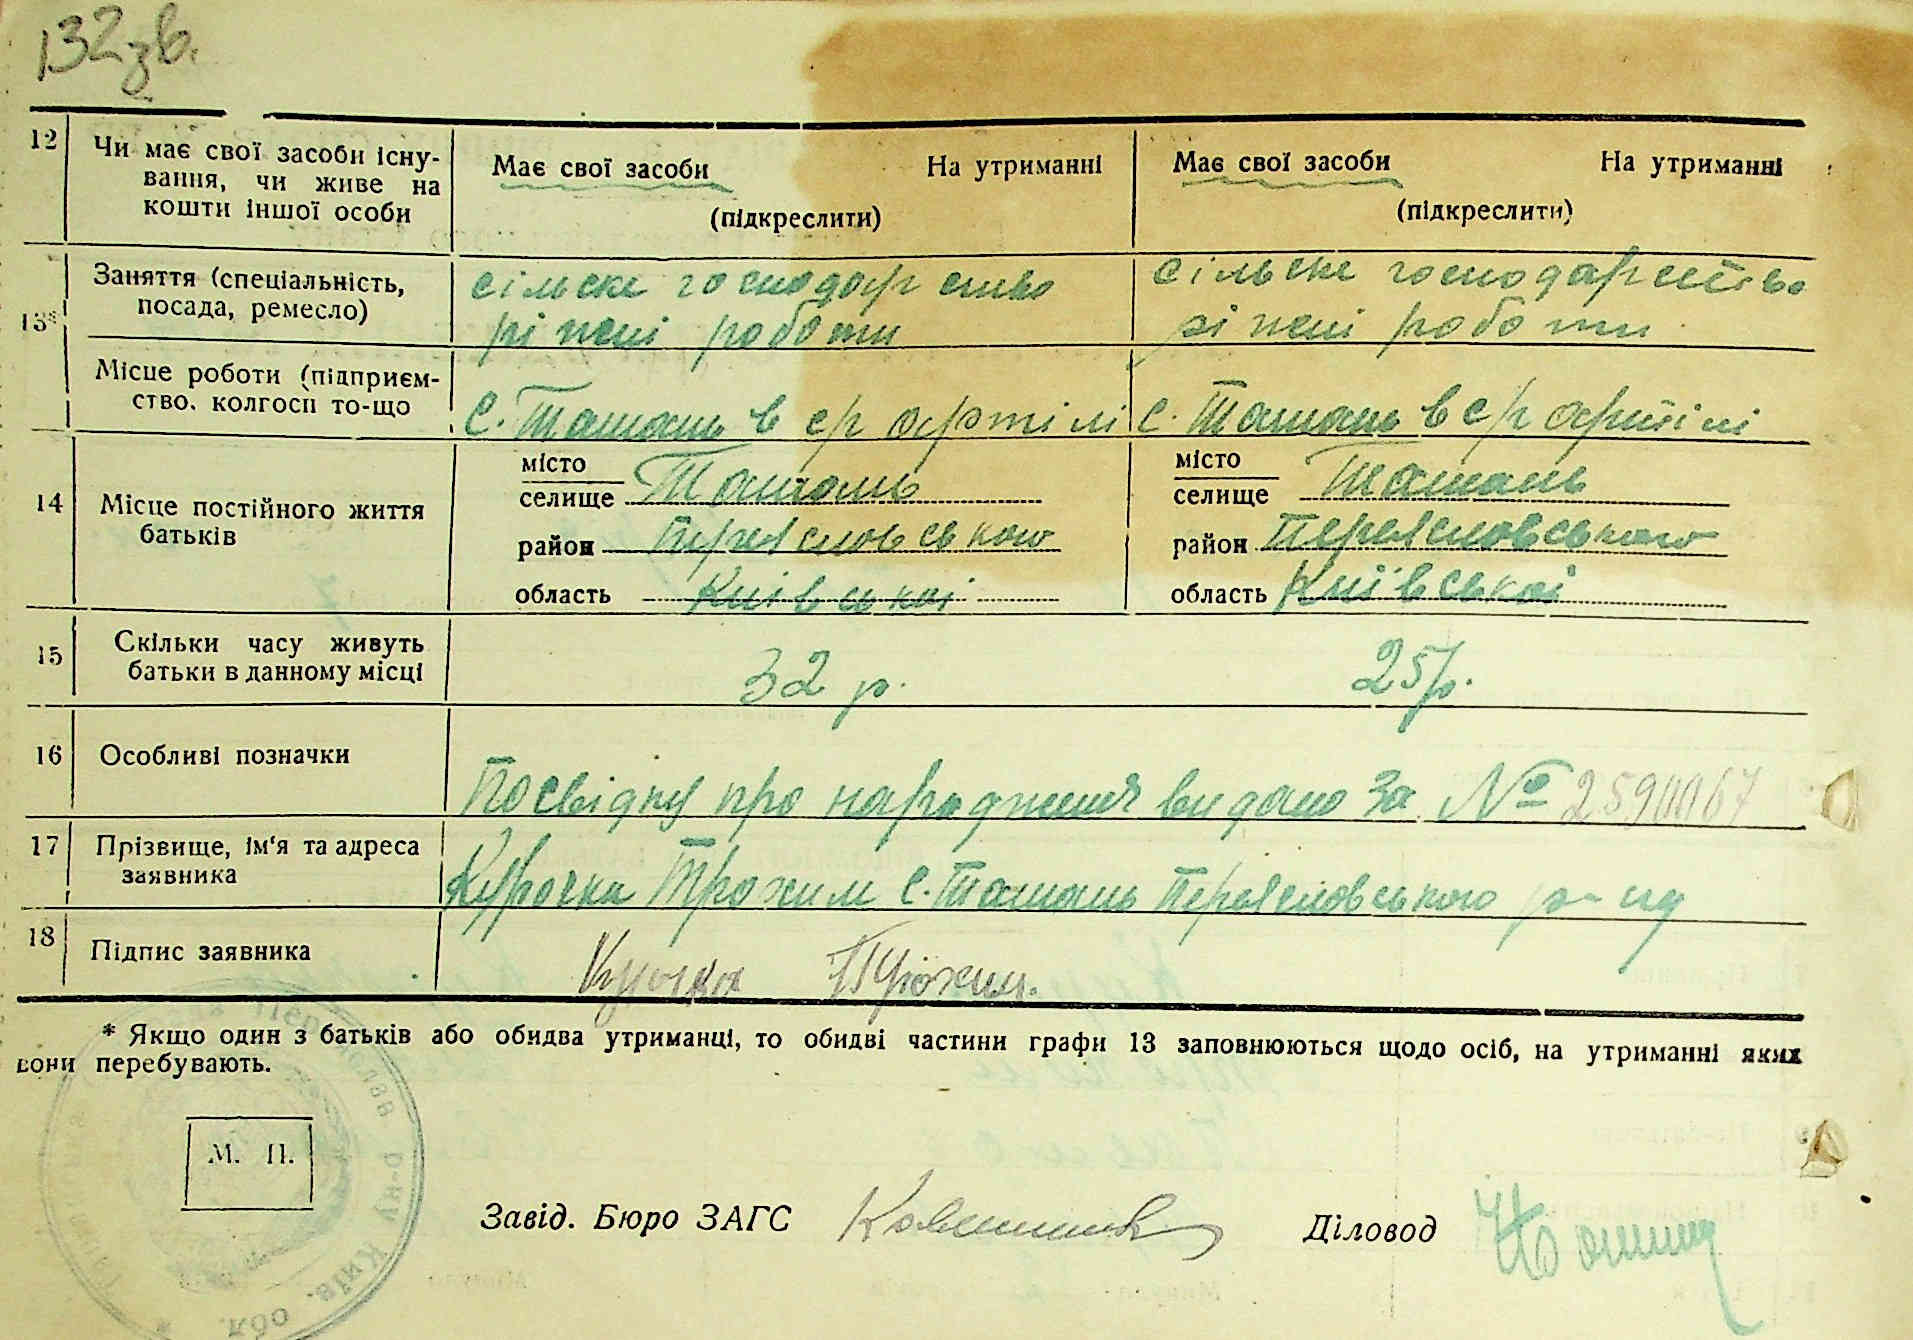 132зв.
12 Чи має свої засоби існу-
вання, чи живе на
кошти іншої особи
Має свої засоби На утриманні
(підкреслити)
Має свої засоби На утриманні
(підкреслити)
13* Заняття (спеціальність,
посада, ремесло)
сільске господарство
ріжні роботи
сільске господарство
ріжні роботи
Місце роботи (підприєм-
ство, колгосп то-що
С. Ташань в с/г артілі
С. Ташань в с/г артілі
14 Місце постійного життя
батьків
місто
селище Ташань
район Переясловського
область Київської
місто
селище Ташань
район Переясловського
область Київської
15 Скільки часу живуть
батьки в данному місці
32 р.
25 р.
16 Особливі позначки
Посвідку про народження видано за №
17 Прізвище, ім'я та адреса
заявника
Курочка Трохим с. Ташань Переясловського р-ну
18 Підпис заявника
Курочка Трохим.
* Якщо один з батьків або обидва утриманці, то обидві частини графи 13 заповнюються щодо осіб, на утриманні яких
вони перебувають.
М. П.
Завід. Бюро ЗАГС
Діловод
Переяслав р-ну Київ. обл.